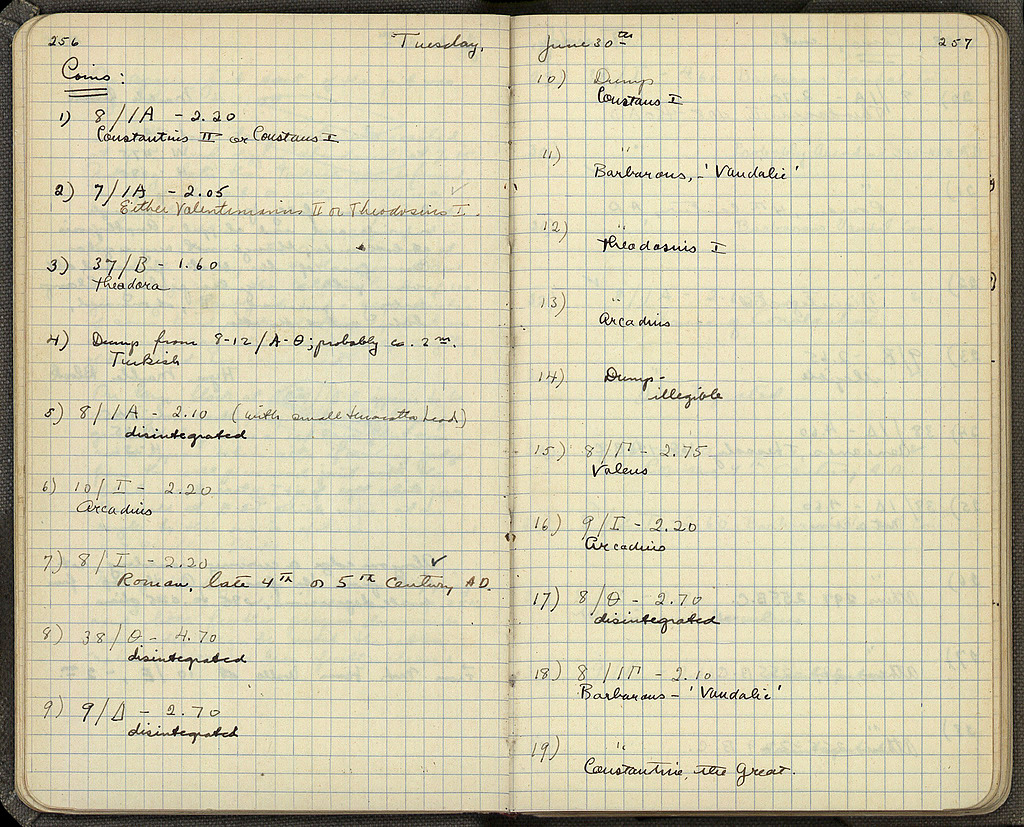 256
Tuesday,
Coins:
1) 8/IA - 2.20
Constantius II or Constans I
2) 7/IA - 2.05 ✓
Either Valentinianus II or Theodosius I.
3) 37/B - 1.60
Theodora
4) Dump from 8-12/A-Θ; probably ca. 2 m.
Turkish
5) 8/IA - 2.10 (with small terracotta head)
disintegrated
6) 10/I - 2.20
Arcadius
7) 8/I - 2.20 ✓
Roman, late 4th or 5th century AD.
8) 38/Θ - 4.70
disintegrated
9) 9/Δ - 2.70
disintegrated
June 30th
257
10) Dump
Constans I
11) "
Barbarous, - 'Vandalic'
12) "
Theodosius I
13) "
Arcadius
14) Dump -
illegible
15) 8/Γ - 2.75
Valens
16) 9/I - 2.20
Arcadius
17) 8/Θ - 2.70
disintegrated
18) 8/IΓ - 2.10
Barbarous - 'Vandalic'
19) "
Constantine, the Great.